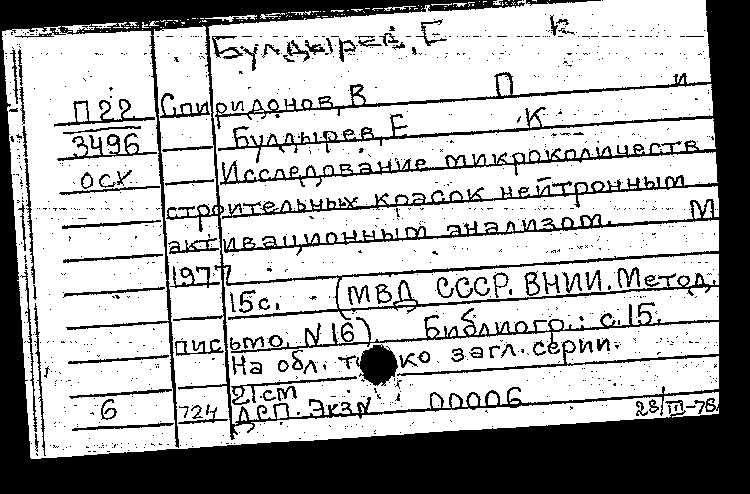 Булдырев, Е К
П22 Спиридонов, В П и
3496 Булдырев, Е К
осх Исследование микроколичеств
строительных красок нейтронным
активационным анализом. М
1977
15с. (МВД СССР. ВНИИ. Метод.
письмо. N16) Библиогр.: с.15.
На обл. то ко загл. серии.
21см
6 724 ДСП. Экз N 00006 28/III-78